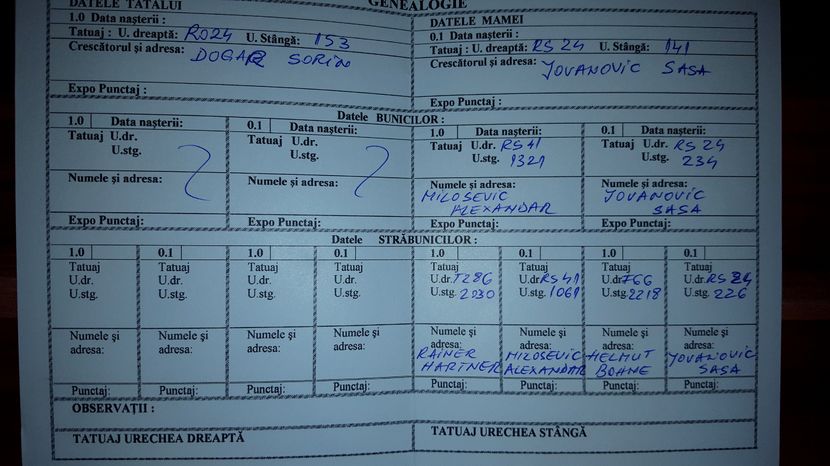 GENEALOGIE
DATELE TATĂLUI
1.0 Data nașterii :
Tatuaj : U. dreaptă: RO24 U. Stângă: 153
Crescătorul și adresa: DOGAR SORIN
Expo Punctaj :
DATELE MAMEI
0.1 Data nașterii:
Tatuaj : U. dreaptă: RS 24 U. Stângă: 141
Crescătorul și adresa: JOVANOVIC SASA
Expo Punctaj:
Datele BUNICILOR :
1.0 Data nașterii:
Tatuaj U.dr.
U.stg.
Numele și adresa:
Expo Punctaj:
0.1 Data nașterii:
Tatuaj U.dr.
U.stg.
Numele și adresa:
Expo Punctaj:
1.0 Data nașterii:
Tatuaj U.dr. RS 41
U.stg. 1321
Numele și adresa:
MILOSEVIC
ALEXANDAR
Expo Punctaj:
0.1 Data nașterii:
Tatuaj U.dr. RS 24
U.stg. 234
Numele și adresa:
JOVANOVIC
SASA
Expo Punctaj:
Datele STRĂBUNICILOR :
1.0
Tatuaj
U.dr.
U.stg.
Numele și
adresa:
Punctaj:
0.1
Tatuaj
U.dr.
U.stg.
Numele și
adresa:
Punctaj:
1.0
Tatuaj
U.dr.
U.stg.
Numele și
adresa:
Punctaj:
0.1
Tatuaj
U.dr.
U.stg.
Numele și
adresa:
Punctaj:
1.0
Tatuaj
U.dr. T286
U.stg. 2030
Numele și
adresa:
RAINER
HARTNER
Punctaj:
0.1
Tatuaj
U.dr. RS 41
U.stg. 1061
Numele și
adresa:
MILOSEVIC
ALEXANDAR
Punctaj:
1.0
Tatuaj
U.dr.
U.stg. 2218
Numele și
adresa:
HELMUT
BOHNE
Punctaj:
0.1
Tatuaj
U.dr. RS 24
U.stg. 226
Numele și
adresa:
JOVANOVIC
SASA
Punctaj:
OBSERVAȚII :
TATUAJ URECHEA DREAPTĂ
TATUAJ URECHEA STÂNGĂ